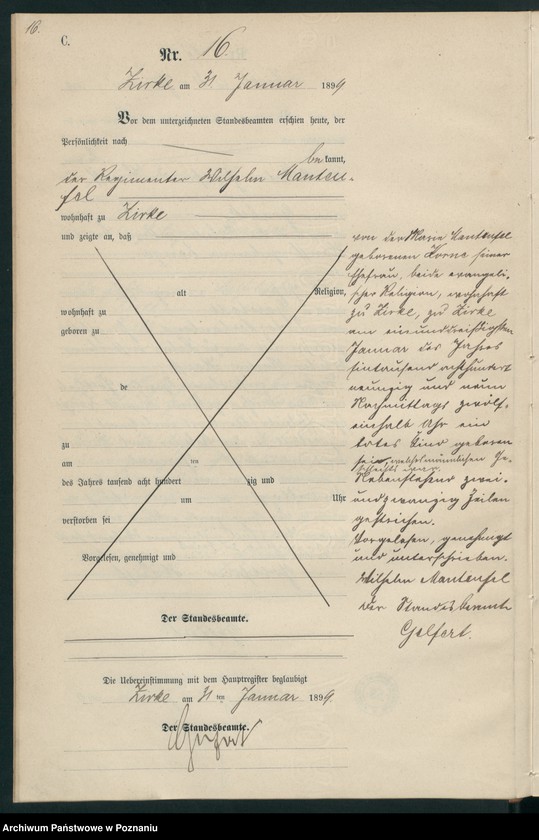 16.
C.
Nr. 16.
Zirke am 31 Januar 1899
Vor dem unterzeichneten Standesbeamten erschien heute, der
Persönlichkeit nach
bekannt,
der Regimenter Wilhelm Manteu-
fel
wohnhaft zu Zirke
und zeigte an, daß
alt Religion,
wohnhaft zu
geboren zu
de
zu
am ten
des Jahres tausend acht hundert zig und
um Uhr
verstorben sei
Vorgelesen, genehmigt und
Der Standesbeamte.
von der Marie Manteufel
geborenen seiner
Ehefrau, beide evangeli-
scher Religion, wohnhaft
zu Zirke, zu Zirke
am einunddreißigsten
Januar des Jahres
eintausend achthundert
neunzig und neun
Nachmittags zwölf-
einhalb Uhr ein
totes Kind geboren
sei, welches männlichen Ge-
schlechts war.
Nebenstehend zwei-
undzwanzig Zeilen
gestrichen.
Vorgelesen, genehmigt
und unterschrieben.
Wilhelm Manteufel
Der Standesbeamte
Gelfert.
Die Uebereinstimmung mit dem Hauptregister beglaubigt
Zirke am 31 ten Januar 1899.
Der Standesbeamte.
Gelfert
Archiwum Państwowe w Poznaniu